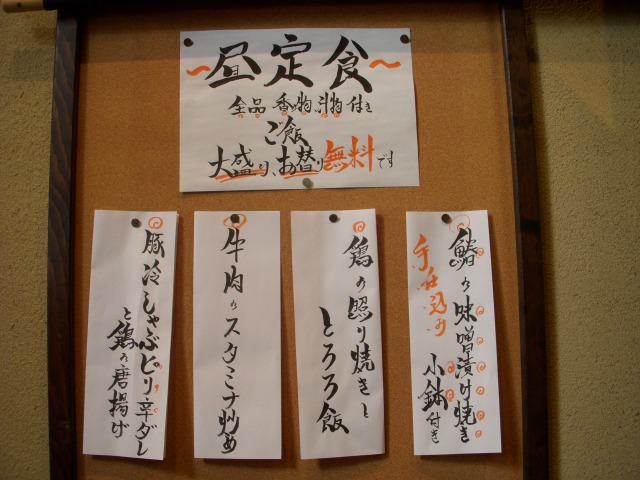 ～昼定食～
全品 香の物、汁物付き
ご飯
大盛り、お替り無料です
鰆の味噌漬け焼き
手仕込み
小鉢付き
鶏の照り焼きと
とろろ飯
牛肉のスタミナ炒め
豚冷しゃぶピリ辛ダレ
と鶏の唐揚げ